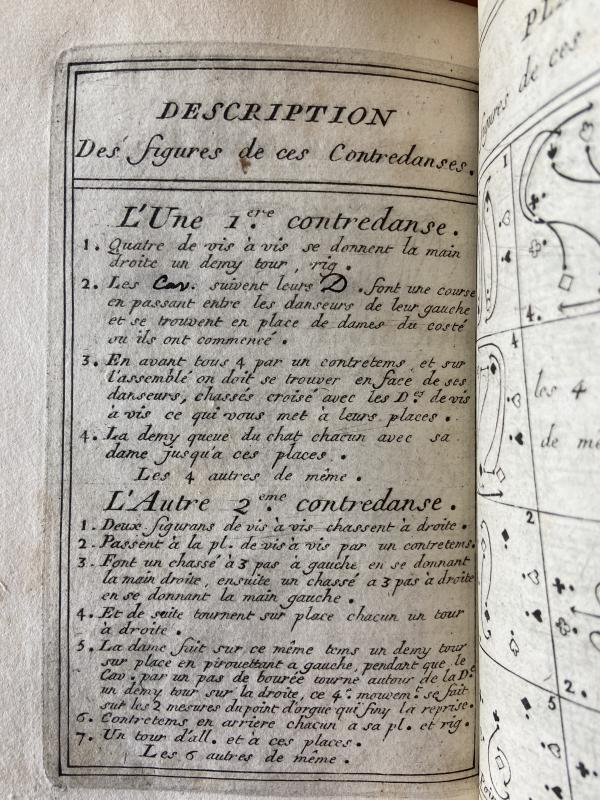 DESCRIPTION
Des figures de ces Contredanses.
L'Une 1.ere contredanse.
1. Quatre de vis à vis se donnent la main
droite un demy tour, rig.
2. Les Cav. suivent leurs D. font une course
en passant entre les danseurs de leur gauche
et se trouvent en place de dames du costé
ou ils ont commencé.
3. En avant tous 4 par un contretems, et sur
l'assemblé on doit se trouver en face de ses
danseurs, chassés croisé avec les D.es de vis
à vis ce qui vous met à leurs places.
4. La demy queue du chat chacun avec sa
dame jusqu'a ces places.
Les 4 autres de même.
L'Autre 2.eme contredanse.
1. Deux figurans de vis à vis chassent à droite.
2. Passent à la pl. de vis à vis par un contretems.
3. Font un chassé à 3 pas à gauche en se donnant
la main droite, ensuite un chassé a 3 pas à droite
en se donnant la main gauche.
4. Et de suite tournent sur place chacun un tour
à droite.
5. La dame fait sur ce même tems un demy tour
sur place en pirouettant a gauche, pendant que le
Cav. par un pas de bourée tourne autour de la D.e
un demy tour sur la droite, ce 4.e mouvem.t se fait
sur les 2 mesures du point d'orgue qui finy la reprise.
6. Contretems en arriere chacun à sa pl. et rig.
7. Un tour d'all. et à ces places.
Les 6 autres de même.
figures de ces
1
4.
les 4
de mê
2
2.
5